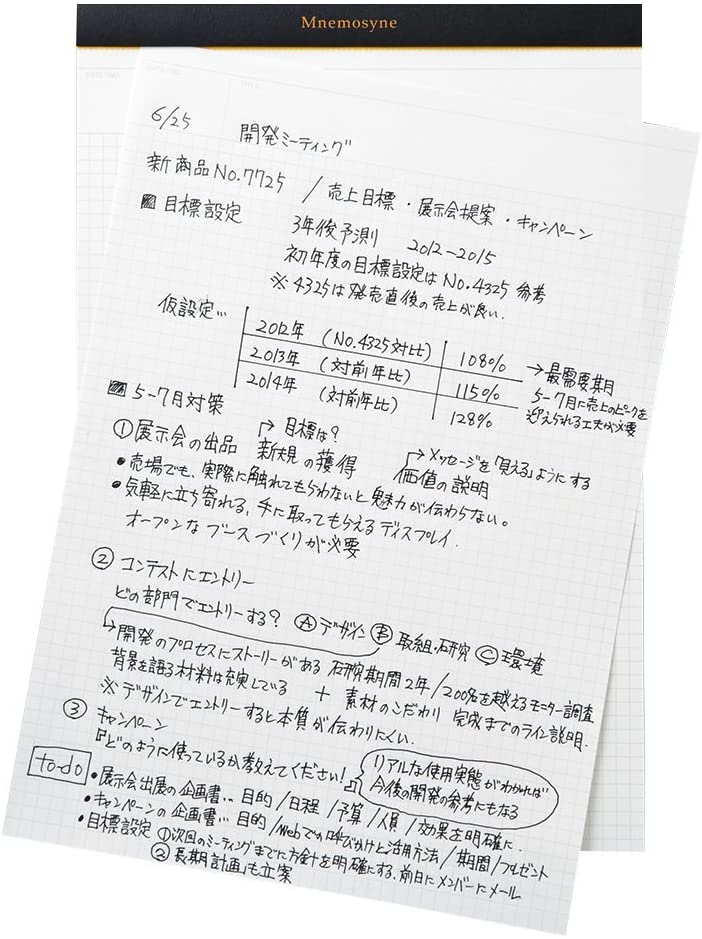 Mnemosyne
6/25 開発ミーティング
新商品No.7725 / 売上目標・展示会提案・キャンペーン
目標設定 3年後予測 2012-2015
初年度の目標設定はNo.4325参考
※4325は発売直後の売上が良い.
仮設定…
2012年 (No.4325対比) 108%
2013年 (対前年比) 115%
2014年 (対前年比) 128%
→最需要期
5-7月に売上のピークを
迎えられる工夫が必要
5-7月対策
①展示会の出品
→目標は?
新規の獲得
→メッセージを「見える」ようにする
価値の説明
・売場でも、実際に触れてもらわないと魅力が伝わらない。
・気軽に立ち寄れる、手に取ってもらえるディスプレイ.
オープンなブースづくりが必要
②コンテストにエントリー
どの部門でエントリーする? Ⓐデザイン Ⓑ取組・研究 Ⓒ環境
→開発のプロセスにストーリーがある 研究期間2年/200名を越えるモニター調査
背景を語る材料は充実している + 素材のこだわり 完成までのライン説明.
※デザインでエントリーすると本質が伝わりにくい.
③キャンペーン
『どのように使っているか教えてください!』
リアルな使用実態がわかれば
今後の開発の参考にもなる
to-do
・展示会出展の企画書… 目的/日程/予算/人員/効果を明確に.
・キャンペーンの企画書… 目的/Webでの呼びかけと活用方法/期間/プレゼント
・目標設定 ①次回のミーティングまでに方針を明確にする.前日にメンバーにメール
②「長期計画」も立案